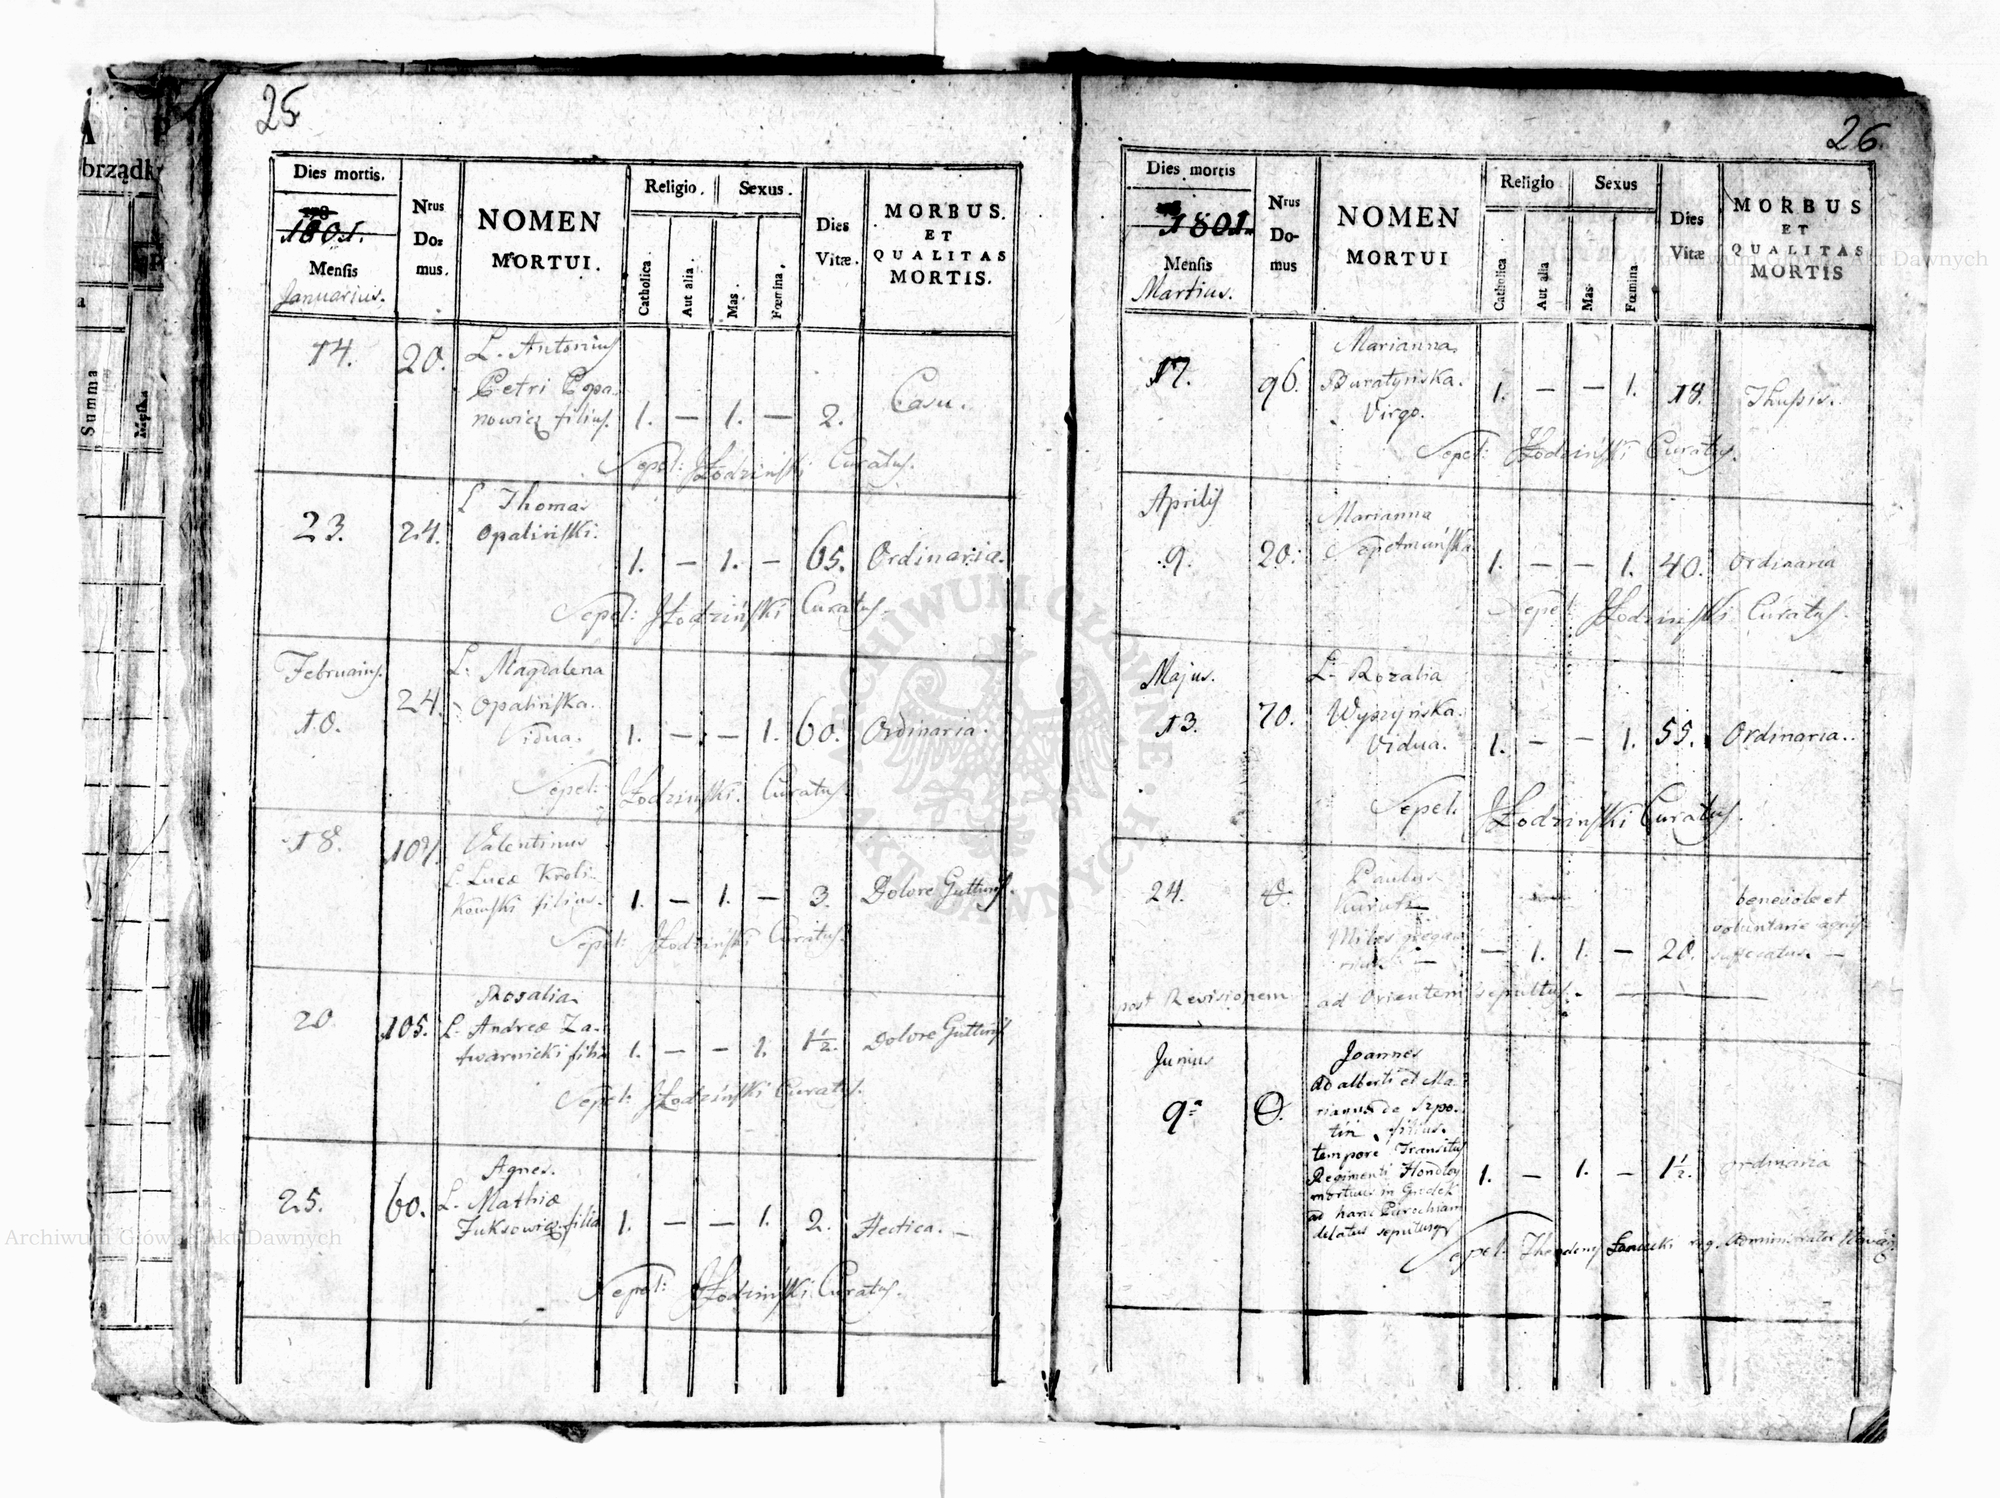 25
Dies mortis.
1801.
Mensis
Januarius.
Nrus
Do=
mus.
NOMEN
MORTUI.
Religio.
Sexus.
Catholica.
Aut alia.
Mas.
Fœmina.
Dies
Vitæ.
MORBUS.
ET
QUALITAS
MORTIS.
14. 20. L. Antonius
Petri Popa-
nowicz filius. 1. — 1. — 2. Casu.
Sepel: JŁodziński Curatus.
23. 24. L Thomas
Opaliński.
1. — 1. — 65. Ordinaria.
Sepel: JŁodziński Curatus.
Februarius.
10. 24. L. Magdalena
Opalińska.
Vidua. 1. — — 1. 60. Ordinaria.
Sepel: JŁodziński. Curatus
18. 107. Valentinus
L. Lucæ Króli-
kowski filius. 1. — 1. — 3. Dolore Gutturis.
Sepel: JŁodziński Curatus.
20 105. Rosalia
L. Andreæ Za-
twarnicki filia 1. — — 1. 1½. Dolore Gutturis
Sepel: JŁodziński Curatus.
25. 60. Agnes.
L. Mathiæ
Fuksowicz filia 1. — — 1. 2. Hectica. —
Sepel: JŁodziński Curatus.
26.
Dies mortis
1801.
Mensis
Martius.
Nrus
Do-
mus
NOMEN
MORTUI
Religio
Sexus
Catholica
Aut alia
Mas
Fœmina
Dies
Vitæ
MORBUS
ET
QUALITAS
MORTIS
17. 96. Marianna
Buratyńska.
Virgo. 1. — — 1. 18. Thussis.
Sepel: JŁodziński Curatus.
Aprilis
9. 20. Marianna
1. — — 1. 40. Ordinaria
Sepel: JŁodziński Curatus.
Majus.
13. 70. L. Rozalia
Wyszyńska.
Vidua. 1. — — 1. 55. Ordinaria.
Sepel: JŁodziński Curatus.
24. 0. Paulus
Miles
— 1. 1. — 20. benevole et
voluntarie
suffocatus. —
post Revisionem ad Orientem sepultus. —
Junius
9a 0. Joannes
Adalberti et Ma-
rianna de
filius.
tempore Transitus
Regimenti
mortuus in Grodek
ad hanc Parochiam
delatus sepultusq
1. — 1. — 1½. Ordinaria
Sepel: Administrator
ARCHIWUM GŁÓWNE AKT DAWNYCH
Archiwum Główne Akt Dawnych
Archiwum Główne Akt Dawnych
A
brządk
Summa
Męska